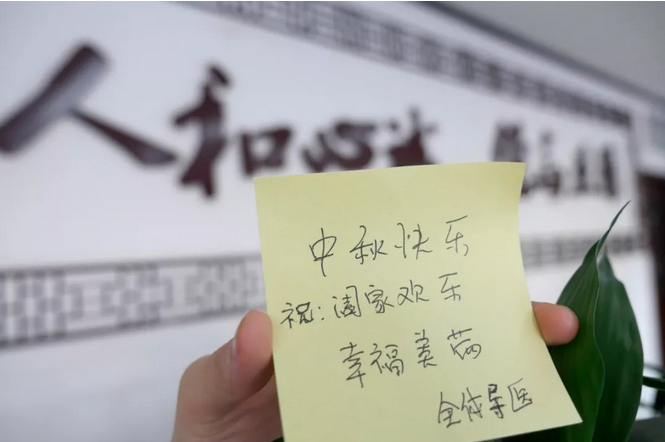 人和心
中秋快乐
祝:阖家欢乐
幸福美满
全体导医